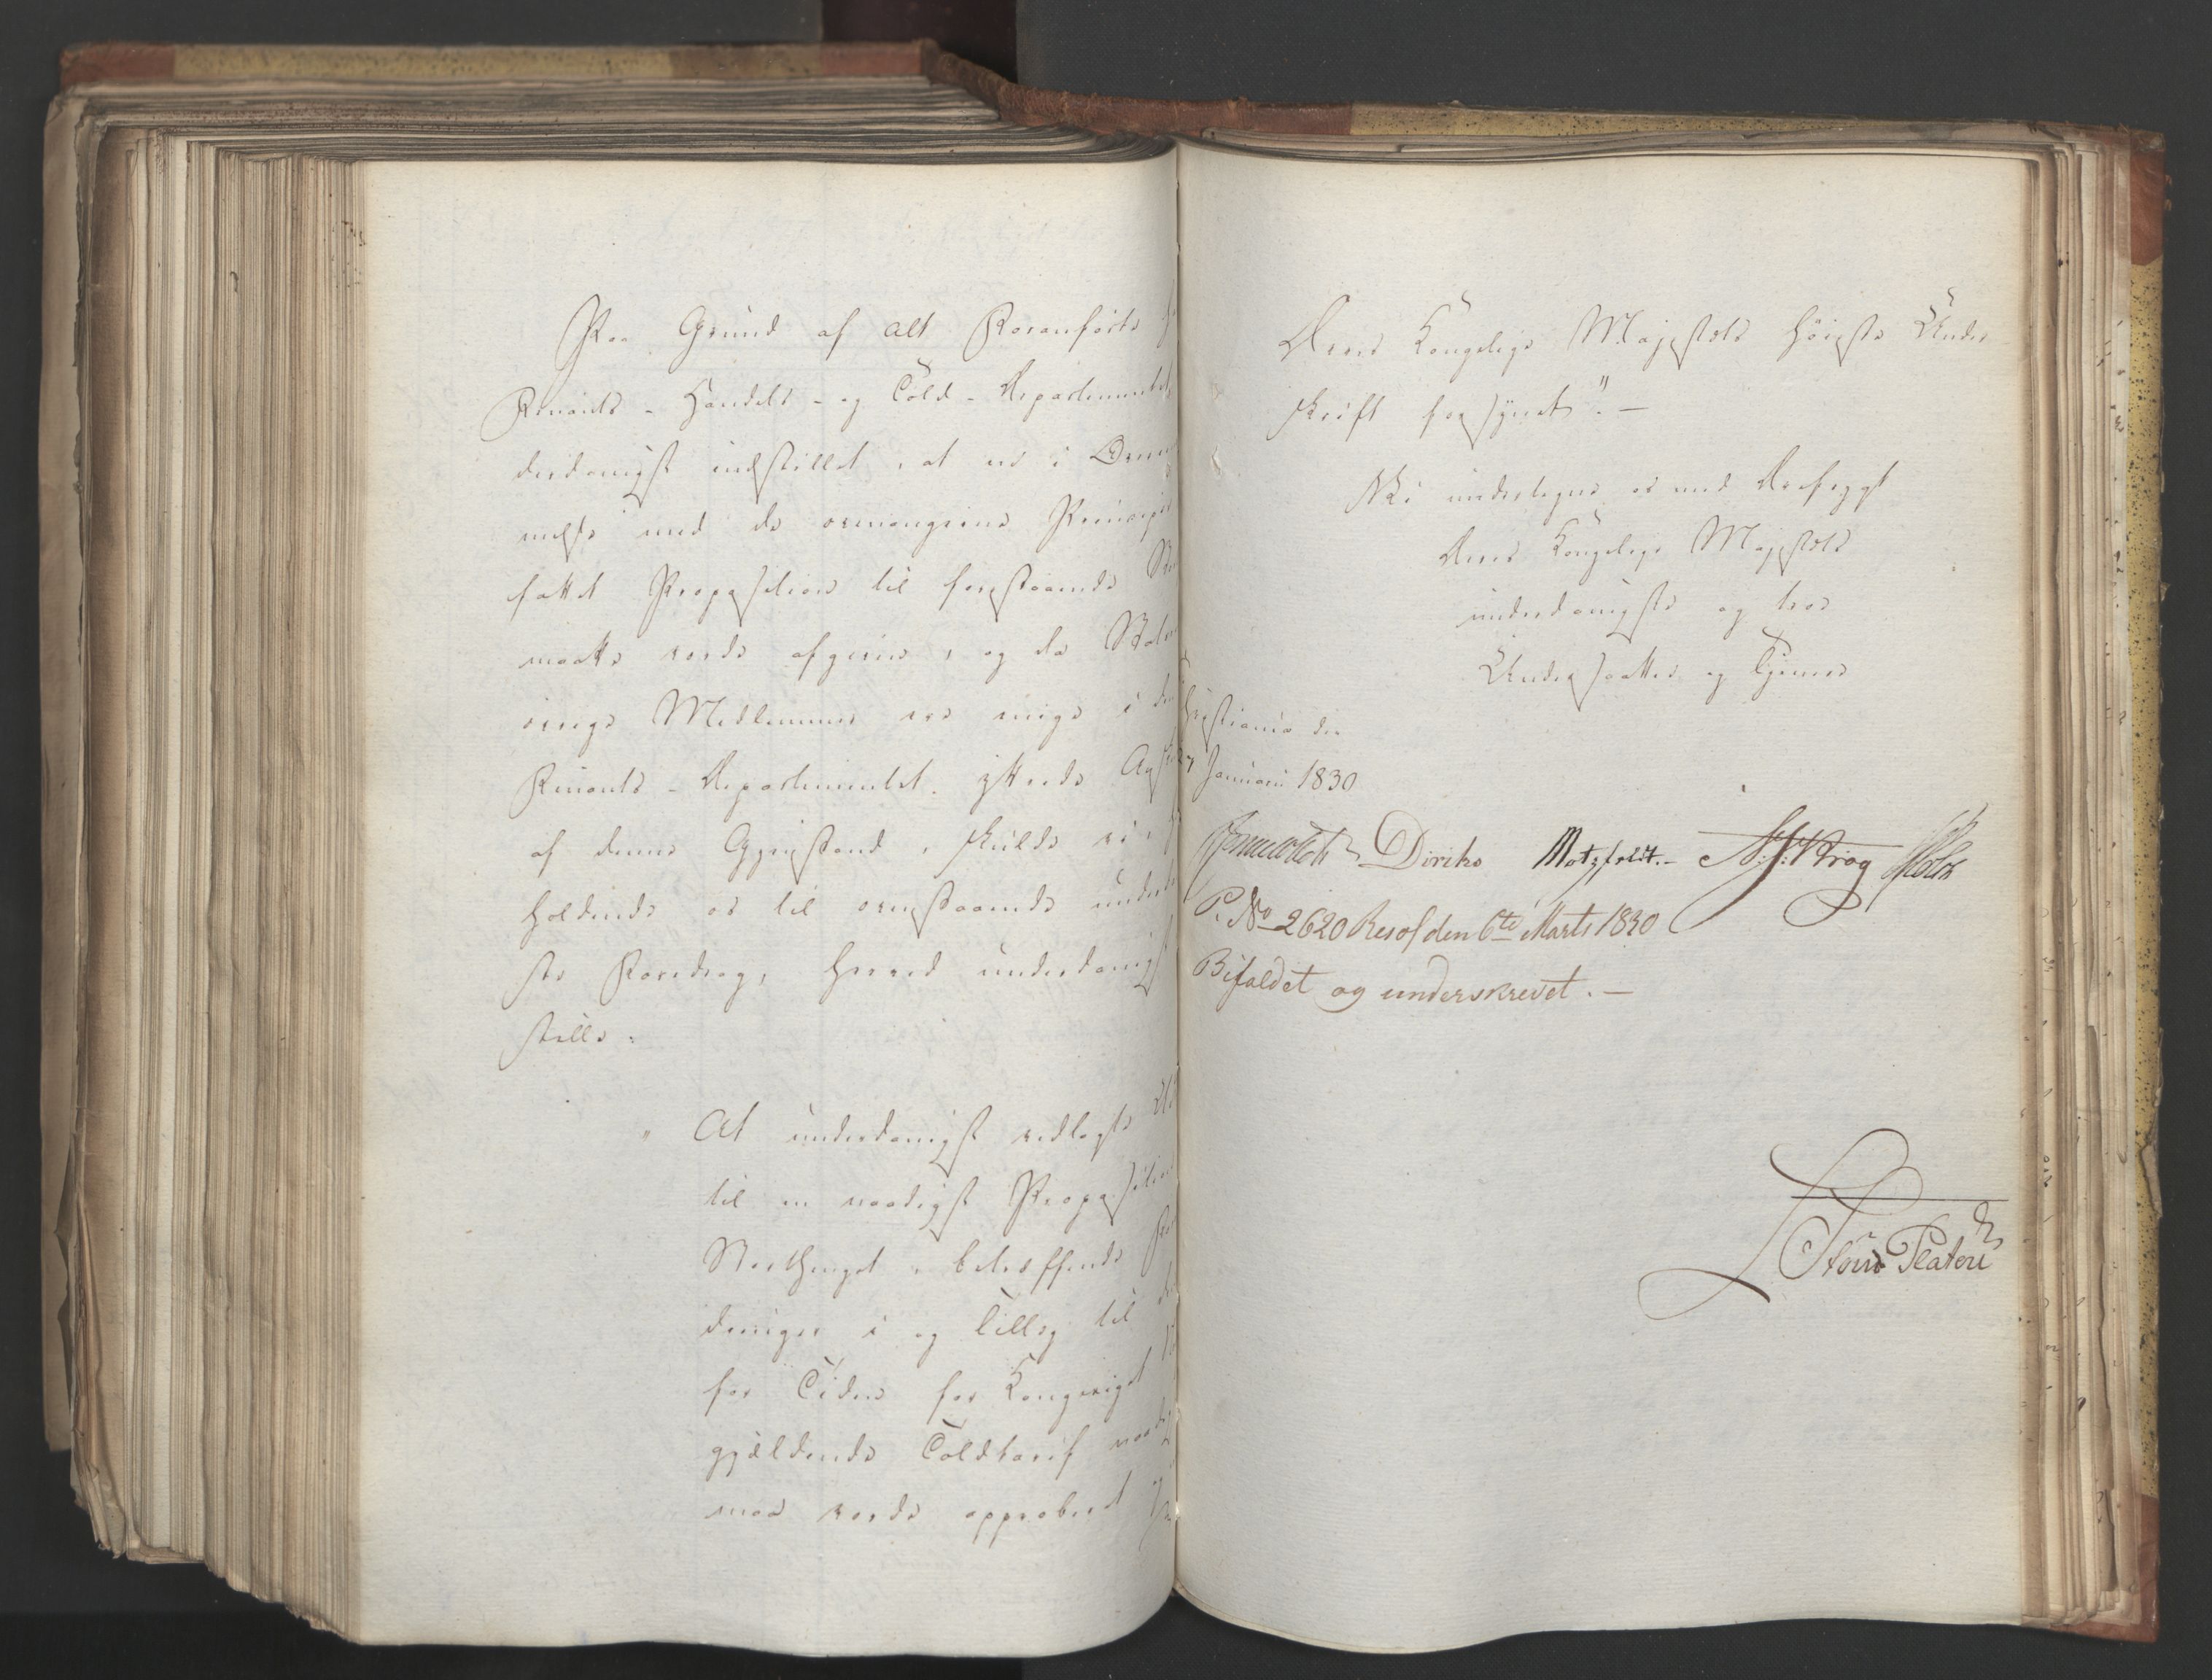 Paa Grund af alt Foranførte
Finants- Handels- og Told-Departementet
derdanigst indstillet, at en i Overeens
melse med de ovenangivne Principer
fattet Proposition til forestaaende Stor
maatte vorde afgiven, og da Stats
øvrige Medlemmer ere enige i den
Finants-Departementet yttrede Ansk
af denne Gjenstand, skulde vi,
holdende os til ovenstaaende underd
ste Foredrag, herved underdanigst
stille:
"At underdanigst vedlagte Ud
til en naadigst Proposition
Storthinget, betræffende
dringer i og Tillæg til den
for Tiden for Kongeriget
gjældende Toldtarif naadigst
maa vorde approberet og
Deres Kongelige Majestæts høieste Under
skrift forsynet". —
Vi undertegne os med Ærefrygt
Deres Kongelige Majestæts
underdanigste og troe
Undersaatter og Tjenere
Christiania den
Januari 1830
Diriks Motzfeldt.- Krog Holst
P. No 2620 Resol den 6te Marts 1830
Bifaldet og underskrevet. —
Løvenskiold